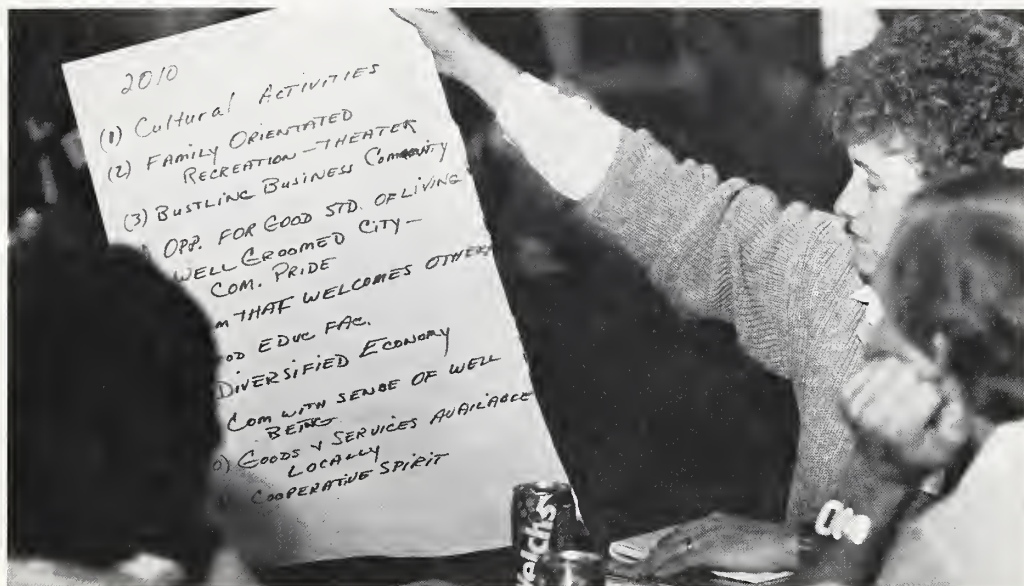 2010
(1) Cultural ACTIVITIES
(2) FAMILY ORIENTATED
RECREATION—THEATER
(3) BUSTLING BUSINESS COMMUNITY
OPP. FOR GOOD STD. OF LIVING
WELL GROOMED CITY—
COM. PRIDE
M THAT WELCOMES OTHERS
OD EDUC FAC.
DIVERSIFIED ECONOMY
COM WITH SENSE OF WELL
BEING
0) GOODS & SERVICES AVAILABLE
LOCALLY
COOPERATIVE SPIRIT
Welch's